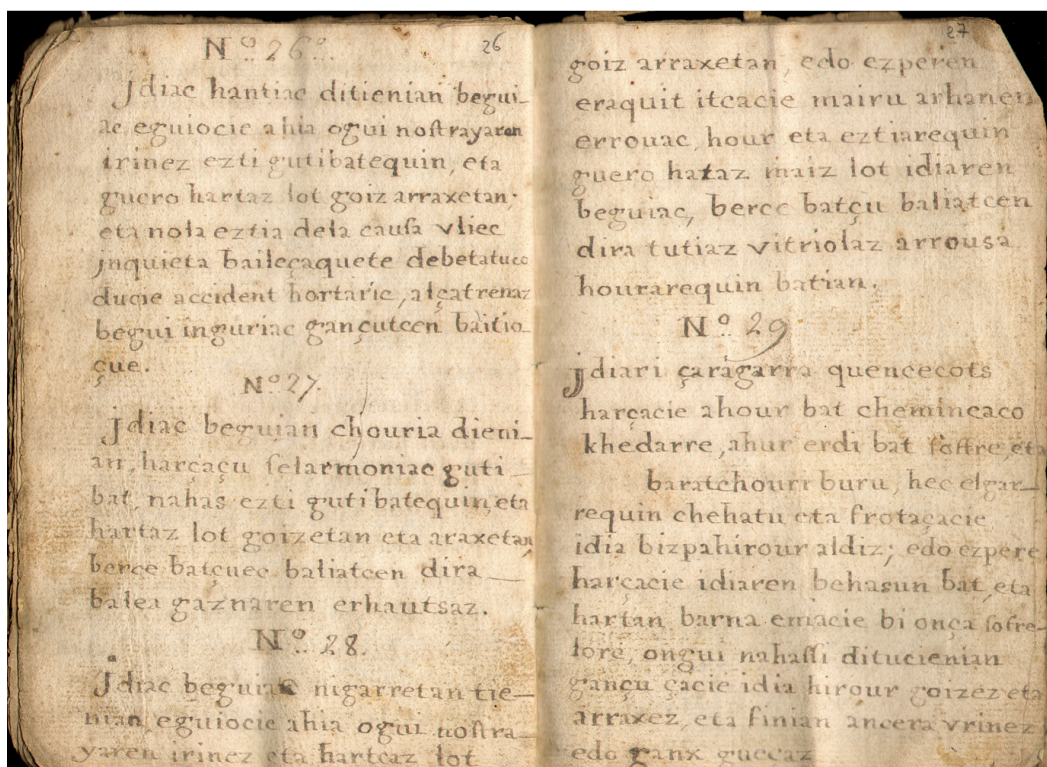 26
Nº 26º.
Jdiac hantiac ditienian begui_
ac, eguiocie ahia ogui noſtrayaren
irinez ezti gutibatequin, eta
guero hartaz lot goiz arraxetan;
eta nola eztia dela cauſa vliec
jnquieta baileçaquete debetatuco
ducie accident hortaric, alçatrenaz
begui inguriac gançutcen baitio_
çue.
Nº 27.
Jdiac beguian chouria dieni_
an, harçaçu ſelarmoniac guti
bat, nahas ezti gutibatequin, eta
hartaz lot goizetan eta araxetan
berce batçuec baliatcen dira _
balea gaznaren erhautsaz.
Nº. 28.
Jdiac beguiac nigarretan tie_
nian, eguiocie ahia ogui noſtra_
yaren irinez eta hartcaz lot
27
goiz arraxetan, edo ezperen
eraquit itcacie mairu arhanen
errouac, hour eta eztiarequin
guero hataz maiz lot idiaren
beguiac, berce batçu baliatcen
dira tutiaz vitriolaz arrousa
hourarequin batian.
Nº. 29
Jdiari çaragarra quencecots
harçacie ahour bat chemineaco
khedarre, ahur erdi bat ſoffre, eta
baratchourr buru, hec elgar_
requin chehatu eta frotaçacie
idia bizpahirour aldiz; edo ezpere
harçacie idiaren behasun bat, eta
hartan barna emacie bi onça ſofre_
lore, ongui nahaſſi ditucienian
gançu çacie idia hirour goizez eta
arraxez, eta finian ancera vrinez
edo ganx gueçaz